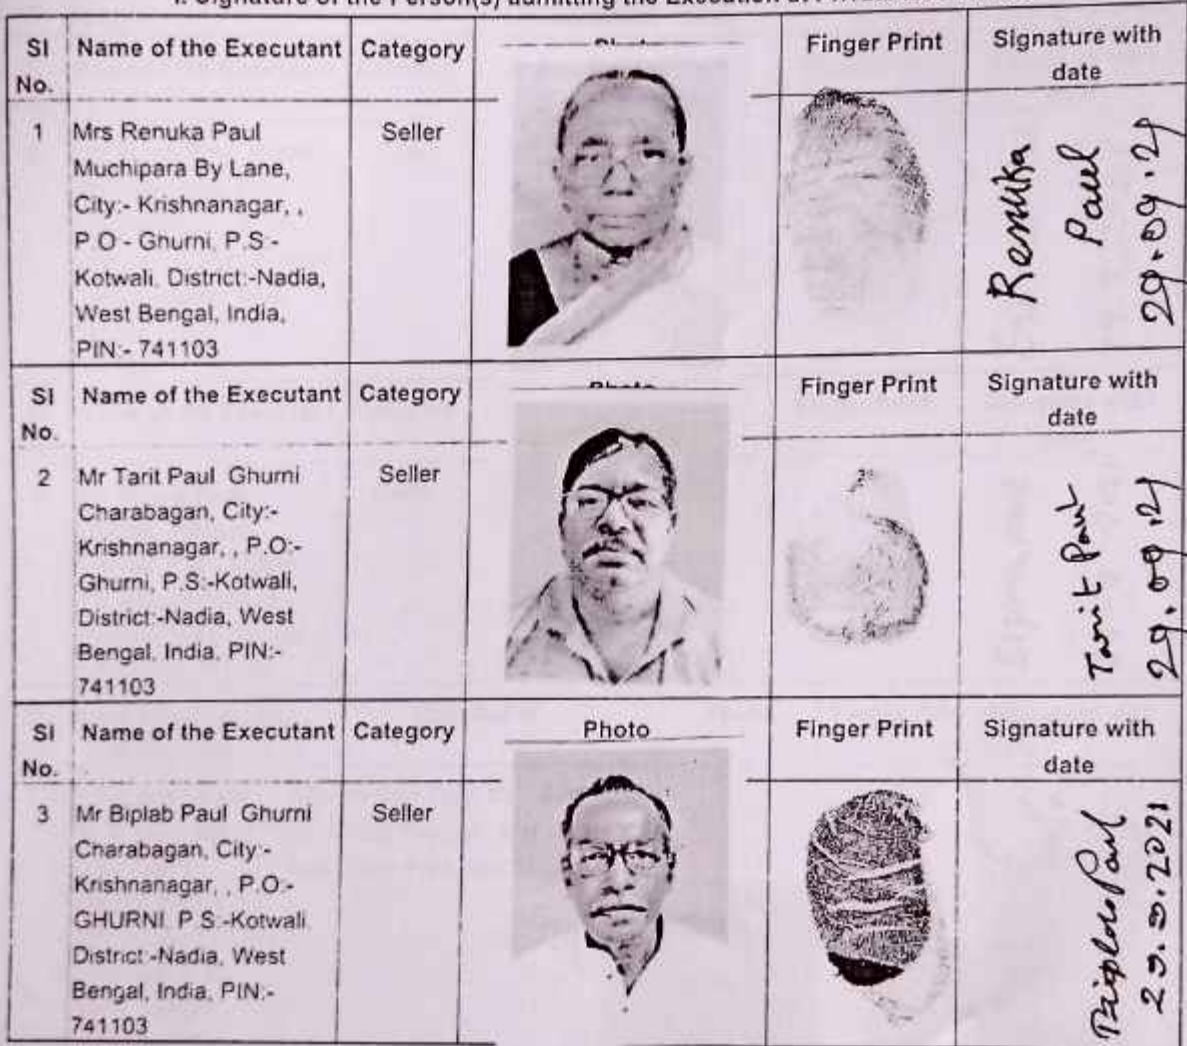 I. Signature of the Person(s) admitting the Execution at Private
Sl No. Name of the Executant Category Photo Finger Print Signature with date
1 Mrs Renuka Paul Seller
Muchipara By Lane,
City:- Krishnanagar, ,
P.O - Ghurni, P.S:-
Kotwali, District:-Nadia,
West Bengal, India,
PIN:- 741103
Renuka
Paul
29.09.21
Sl No. Name of the Executant Category Photo Finger Print Signature with date
2 Mr Tarit Paul Ghurni Seller
Charabagan, City:-
Krishnanagar, , P.O:-
Ghurni, P.S:-Kotwali,
District:-Nadia, West
Bengal, India, PIN:-
741103
Tarit Paul
29.09.21
Sl No. Name of the Executant Category Photo Finger Print Signature with date
3 Mr Biplab Paul Ghurni Seller
Charabagan, City:-
Krishnanagar, , P.O:-
GHURNI, P.S:-Kotwali,
District:-Nadia, West
Bengal, India, PIN:-
741103
Biplab Paul
29.9.2021